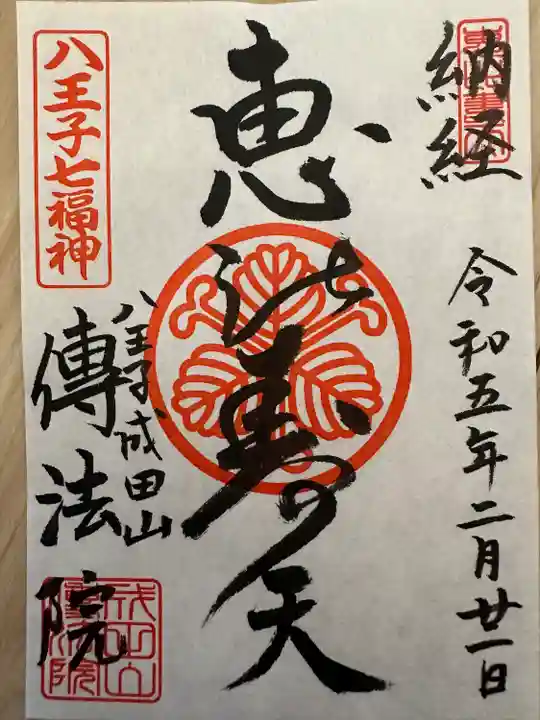 納経
令和五年二月廿一日
恵比寿天
八王子七福神
八王子成田山
傳法院